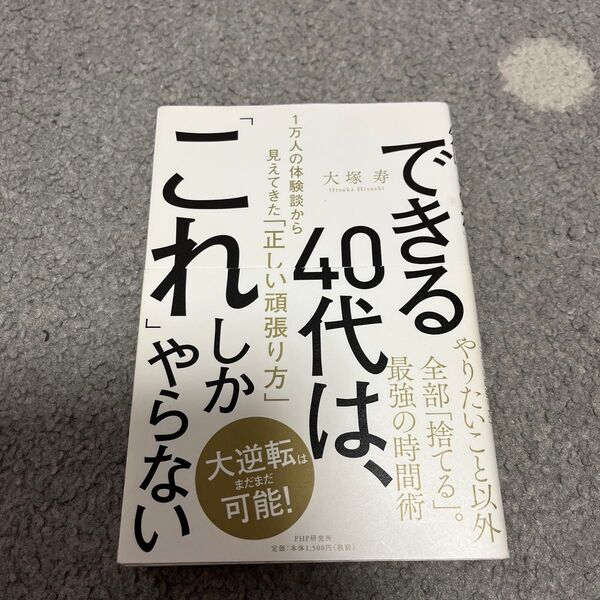 できる
40代は、
「これ」しか
やらない
大塚 寿
Otsuka Hisashi
1万人の体験談から
見えてきた「正しい頑張り方」
やりたいこと以外
全部「捨てる」。
最強の時間術
大逆転は
まだまだ
可能!
PHP研究所
定価:本体1,500円(税別)